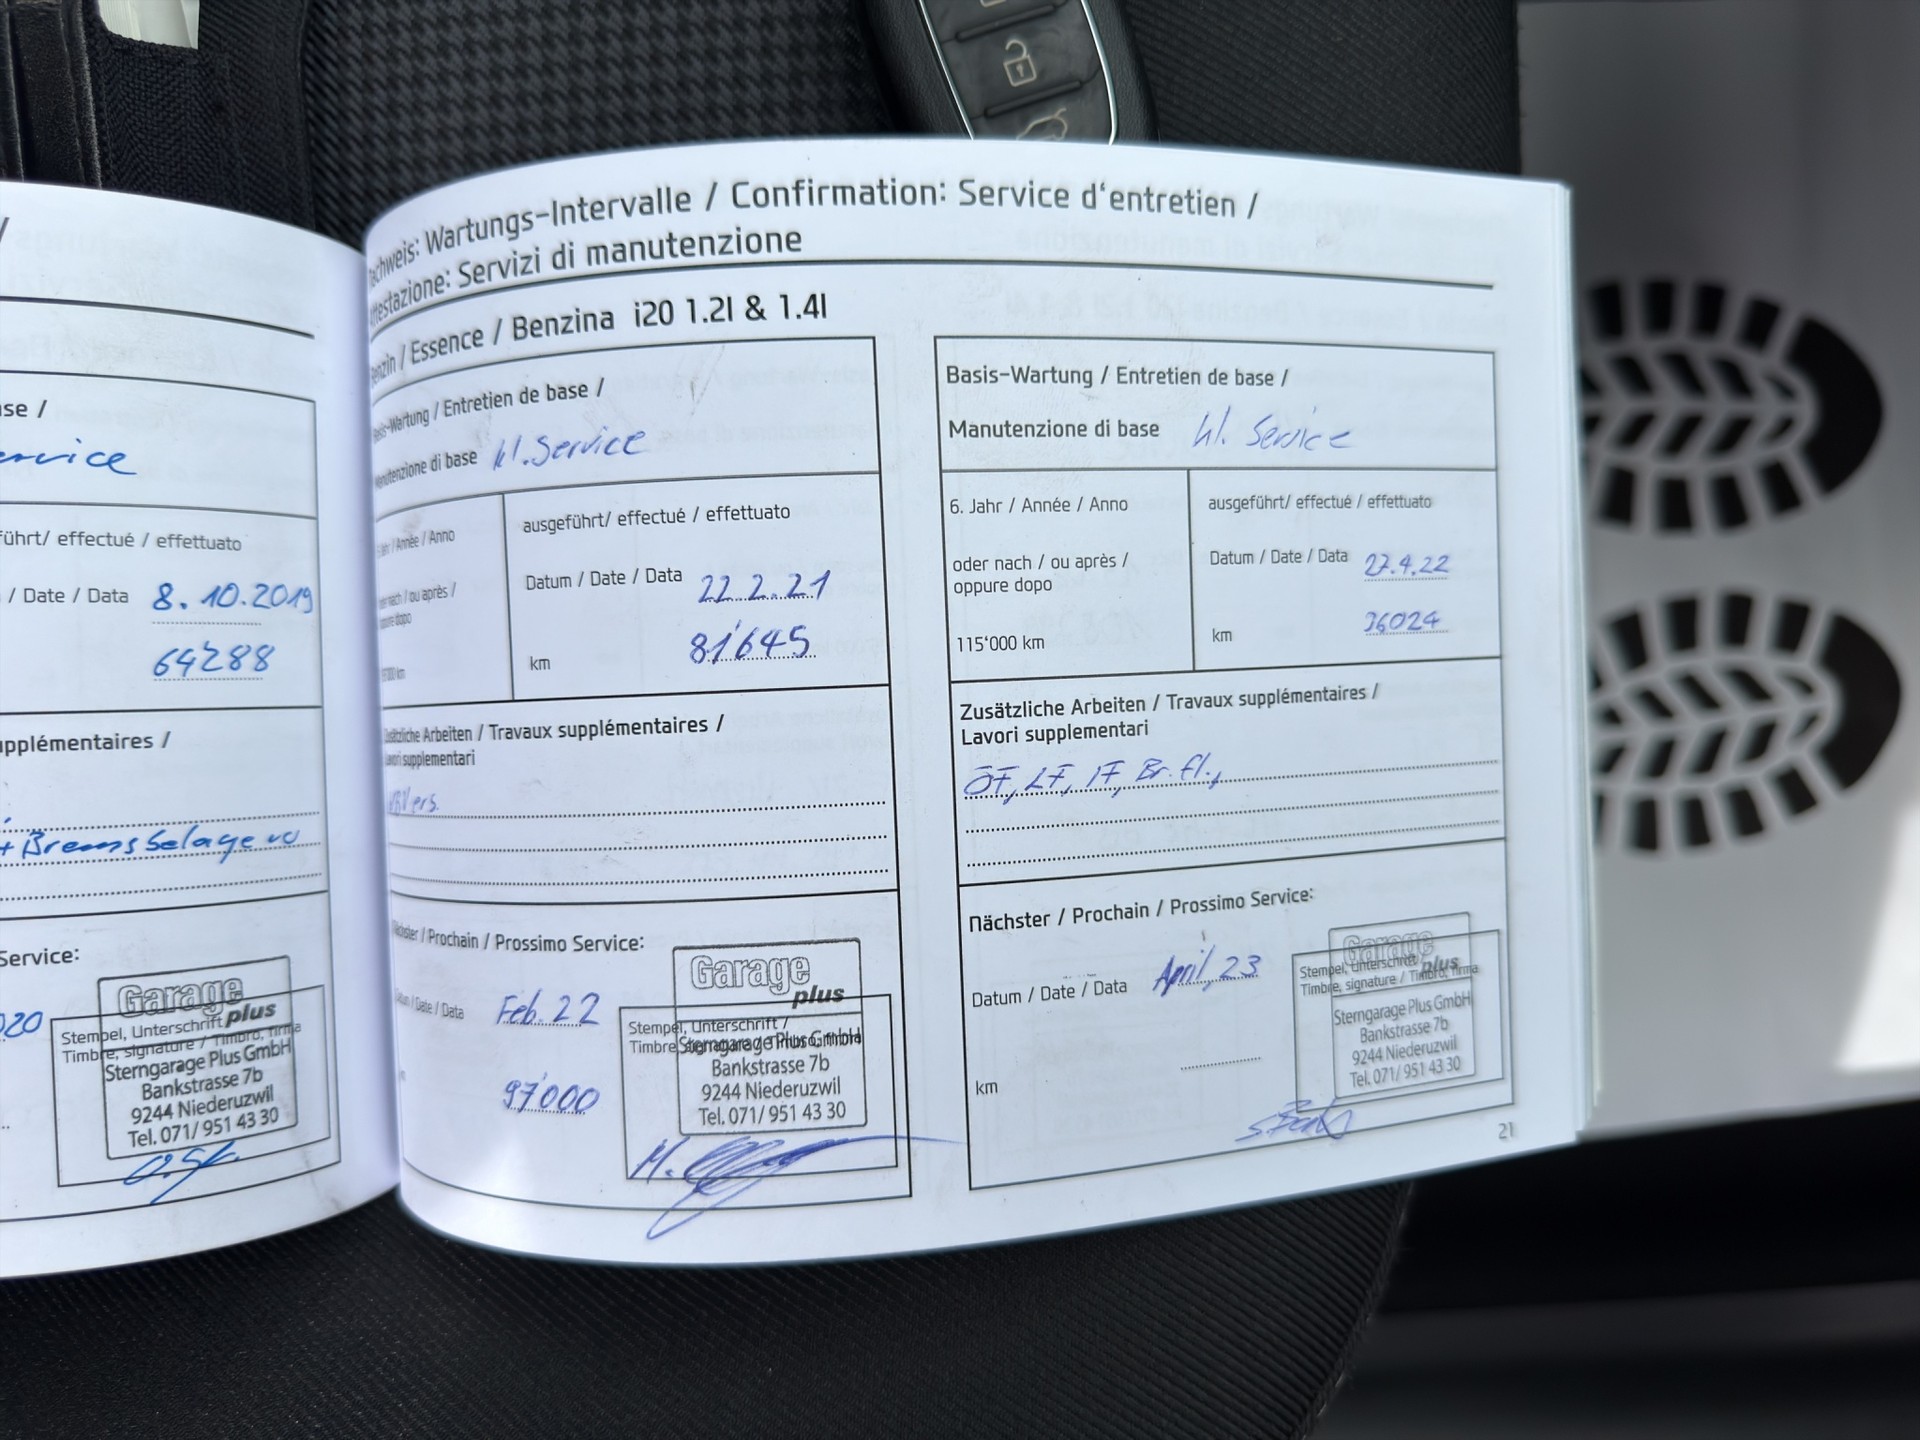 /
se /
ervice
führt/ effectué / effettuato
/ Date / Data 8.10.2019
64288
upplémentaires /
+ Bremsbelage vo
Service:
020
Garage
plus
Stempel, Unterschrift
Timbre, signature / Timbro, firma
Sterngarage Plus GmbH
Bankstrasse 7b
9244 Niederuzwil
Tel. 071/ 951 43 30
achweis: Wartungs-Intervalle / Confirmation: Service d'entretien /
ttestazione: Servizi di manutenzione
enzin / Essence / Benzina i20 1.2l & 1.4l
Basis-Wartung / Entretien de base /
Manutenzione di base kl. Service
Jahr / Année / Anno
oder nach / ou après /
oppure dopo
ausgeführt/ effectué / effettuato
Datum / Date / Data 22.2.21
km 81'645
Zusätzliche Arbeiten / Travaux supplémentaires /
Lavori supplementari
Nächster / Prochain / Prossimo Service:
Datum / Date / Data Feb. 22
97'000
Garage
plus
Stempel, Unterschrift /
Timbre, signature / Timbro, firma
Sterngarage Plus GmbH
Bankstrasse 7b
9244 Niederuzwil
Tel. 071/ 951 43 30
Basis-Wartung / Entretien de base /
Manutenzione di base kl. Service
6. Jahr / Année / Anno
oder nach / ou après /
oppure dopo
115'000 km
ausgeführt/ effectué / effettuato
Datum / Date / Data 27.4.22
km 96024
Zusätzliche Arbeiten / Travaux supplémentaires /
Lavori supplementari
ÖF, LF, IF, Br.fl.,
Nächster / Prochain / Prossimo Service:
Datum / Date / Data April, 23
km
Garage
plus
Stempel, Unterschrift /
Timbre, signature / Timbro, firma
Sterngarage Plus GmbH
Bankstrasse 7b
9244 Niederuzwil
Tel. 071/ 951 43 30
21